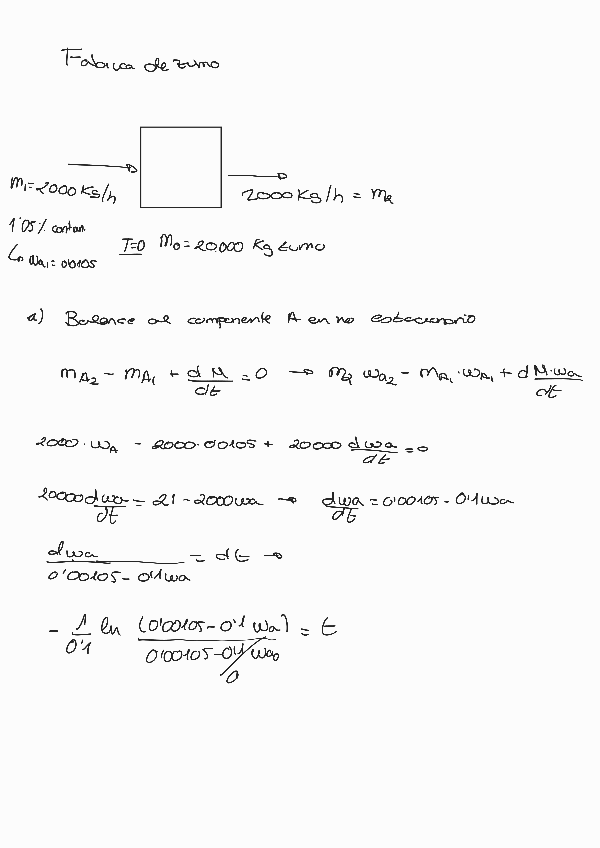 Fabrica de zumo
m₁=2000 Kg/h
2000 Kg/h = m₂
1'05% contam.
↳ wA₁=0'0105
T=0 M₀=20000 Kg zumo
a) Balance al componente A en no estacionario
mA₂ - mA₁ + dM/dt = 0 → m₂ wa₂ - mA₁·wA₁ + d M·wa/dt
2000·wA - 2000·0'0105 + 20000 dwa/dt = 0
20000 dwa/dt = 21 - 2000wa → dwa/dt = 0'00105 - 0'1wa
dwa/(0'00105 - 0'1wa) = dt →
- 1/0'1 ln (0'00105 - 0'1 wa)/(0'00105 - 0'1 wa₀) = t
0